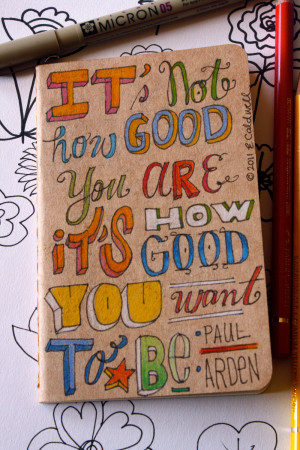 MICRON 05
IT's Not
how GOOD
You ARE
iT'S HOW
GOOD
YOU want
To Be · PAUL ·
ARDEN
© 2011 E Caldwell